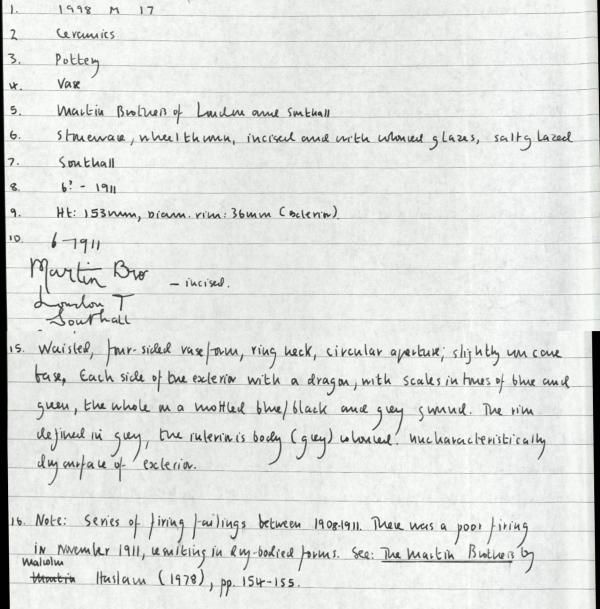 1. 1998 M 17
2 Ceramics
3. Pottery
4. Vase
5. Martin Brothers of London and Southall
6. Stoneware, wheelthrown, incised and with coloured glazes, saltglazed
7. Southall
8. 6? - 1911
9. Ht: 153mm, Diam. rim: 36mm (exterior)
10. 6-1911
Martin Bro
— incised.
London T
Southall
15. Waisted, four-sided vase form, ring neck, circular aperture; slightly concave
base, Each side of the exterior with a dragon, with scales in tones of blue and
green, the whole on a mottled blue/black and grey ground. The rim
defined in grey, the interior is body (grey) coloured. Uncharacteristically
dry surface of exterior.
16. Note: Series of firing failings between 1908-1911. There was a poor firing
in November 1911, resulting in dry-bodied forms. See: The Martin Brothers by
Malcolm
Martin Haslam (1978), pp. 154-155.